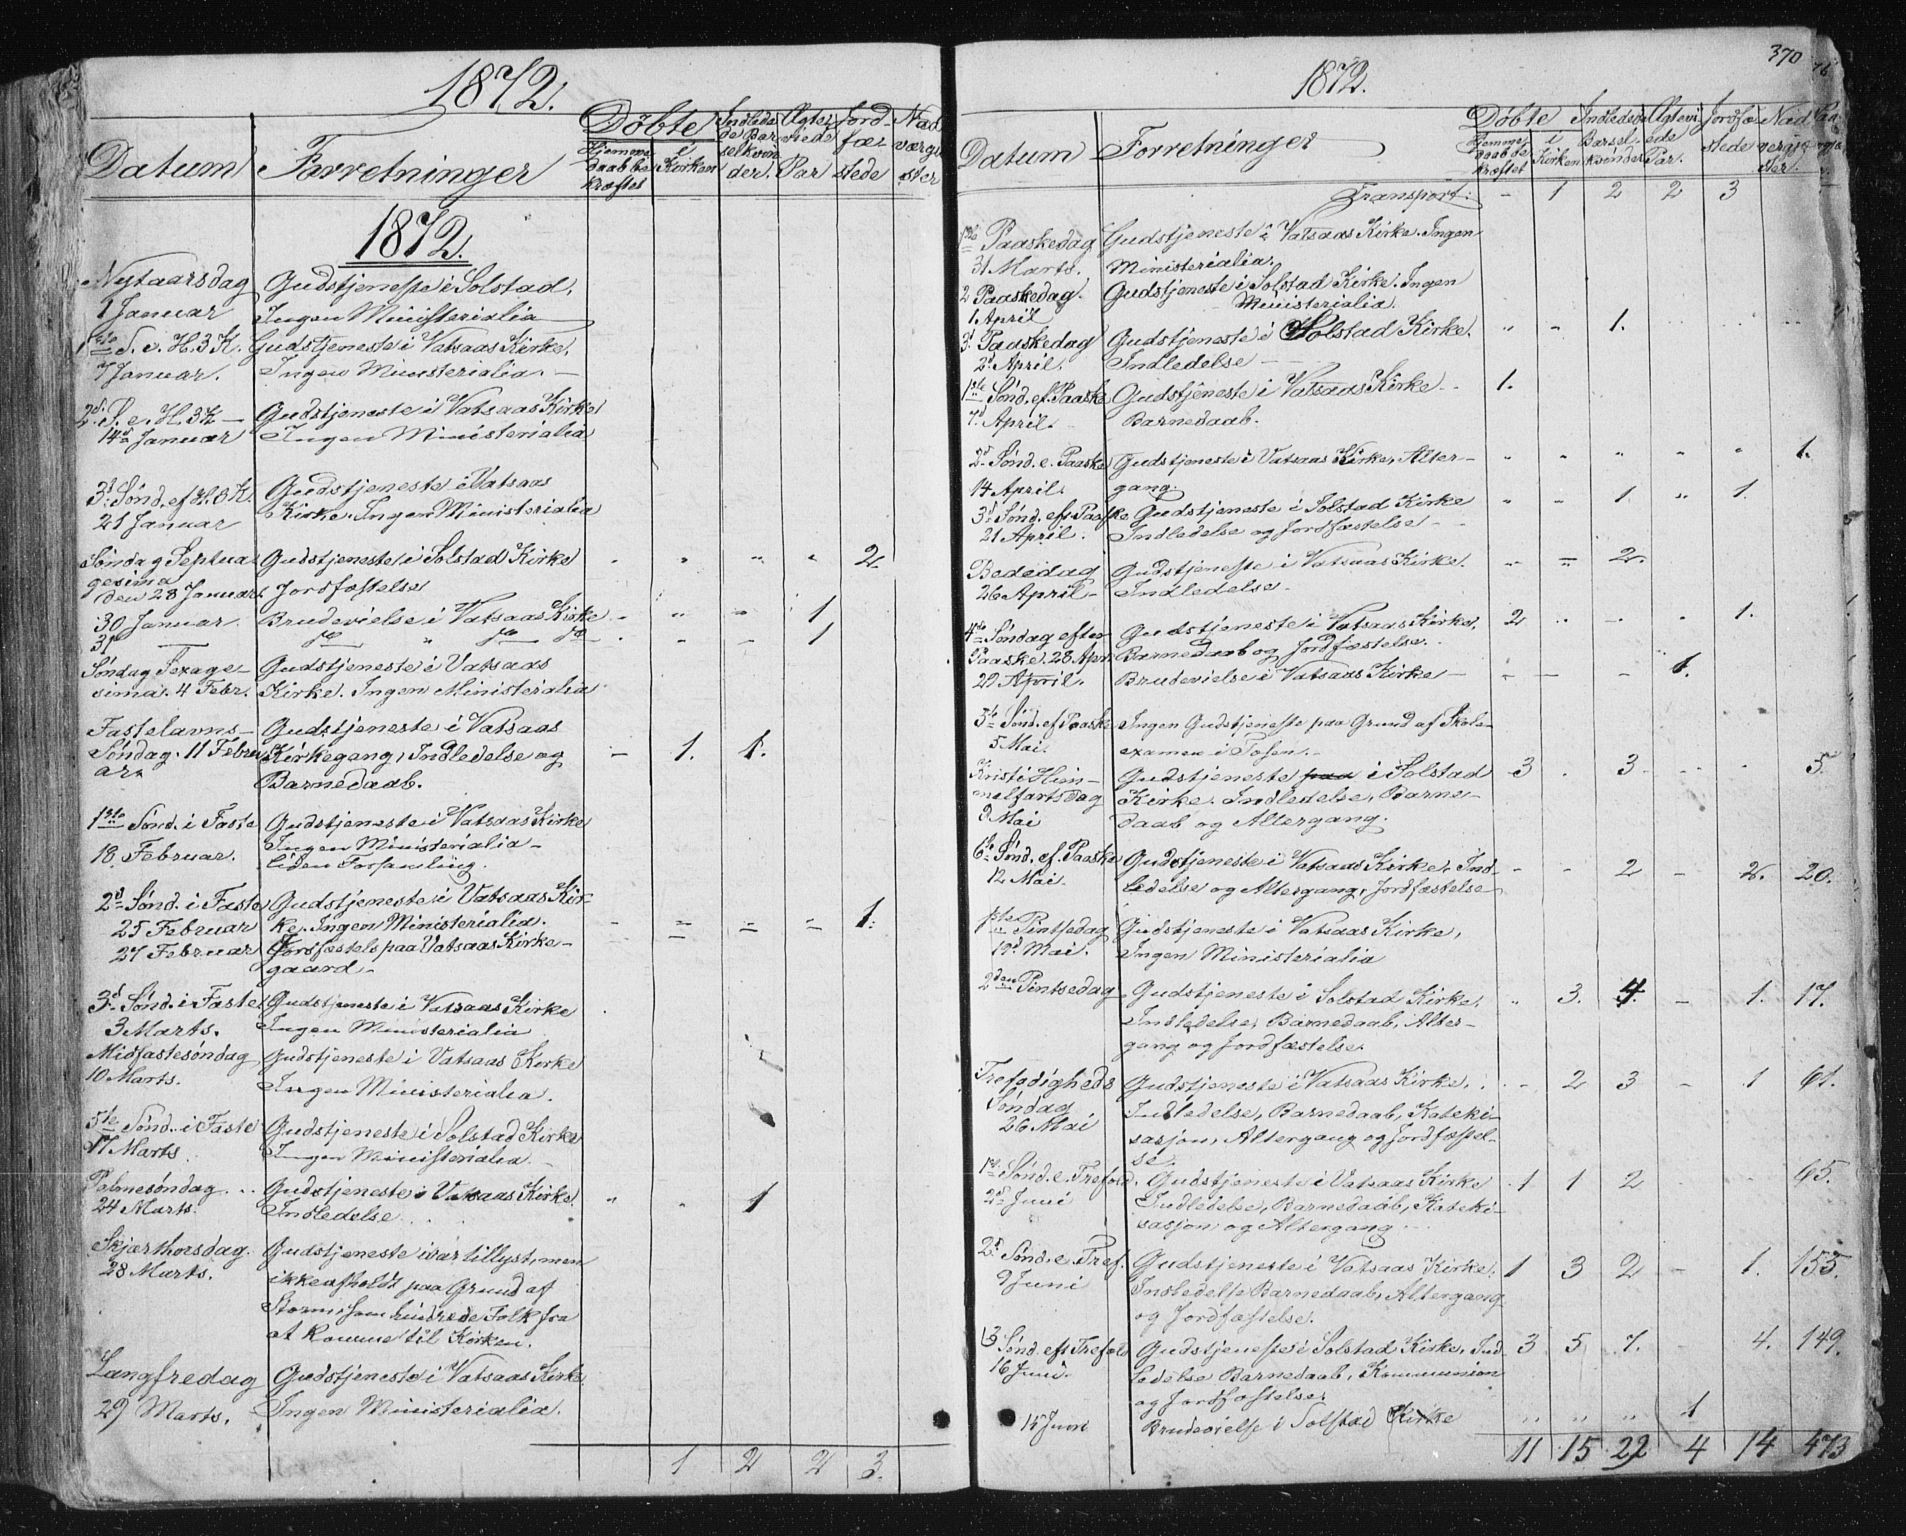 1872.
Datum Forretninger Døbte Indleda- Ægte- Jord- Nad
Hjemme i de Bar viede fær værgæ
daab be Kirken selkvin Par stede ster
kræftet der.
1872.
Nytaarsdag Gudstjeneste i Solstad.
1 Januar Ingen Ministerialia
1ste S. e. H. 3 K. Gudstjeneste i Vatsaas Kirke.
7 Januar. Ingen Ministerialia. -
2d S. e. H. 3 K - Gudstjeneste i Vatsaas Kirke
14d Januar Ingen Ministerialia
3d Sønd. ef H. 3 K. Gudstjeneste i Vatsaas
21 Januar Kirke. Ingen Ministerialia
Søndag Septua Gudstjeneste i Solstad Kirke " " " " 2
gesima
den 28 Januar. Jordfæstelse
30 Januar. Brudevielse i Vatsaas Kirke - " - 1
31 — do " do do " - - 1
Søndag Sexage- Gudstjeneste i Vatsaas
sima. 4 Febr. Kirke. Ingen Ministerialia
Fastelavns- Gudstjeneste i Vatsaas
Søndag. 11 Febru Kirkegang, Indledelse og - 1. 1.
ar. Barnedaab.
1ste Sønd. i Faste Gudstjeneste i Vatsaas Kirke
18 Februar. Ingen Ministerialia -
Liden Forsamling.
2d Sønd. i Faste Gudstjeneste i Vatsaas Kir-
25 Februar ke. Ingen Ministerialia. - = = = 1.
27 Februar Jordfæstels paa Vatsaas Kirke-
gaard -
3d Sønd. i Faste Gudstjeneste i Vatsaas Kirke
3 Marts. Ingen Ministerialia
Midfastesøndag Gudstjeneste i Vatsaas Kirke
10 Marts. Ingen Ministerialia.
5te Sønd. i Faste Gudstjeneste i Solstad Kirke
17 Marts. Ingen Ministerialia -
Palmesøndag . . Gudstjeneste i Vatsaas Kirke. " " 1
24 Marts. Indledelse . . .
Skjærthorsdag. Gudstjeneste var tillyst, men
28 Marts. ikke afholdt paa Grund af
Storm som hindrede Folk fra
at komme til Kirken.
Langfredag Gudstjeneste i Vatsaas Kirke.
29 Marts. Ingen Ministerialia.
1 2 2 3.
370
1872.
Datum Forretninger Døbte Indleda Ægtevi Jordfæ Nad
Hjemme i Barsel- ede stede verjæ
daab be Kirken kvinder Par. ster.
kræftet
Transport. - 1 2 2 3
1ste Paaskedag Gudstjeneste i Vatsaas Kirke. Ingen
31 Marts. Ministerialia.
2 Paaskedag. Gudstjeneste i Solstad Kirke. Ingen
1 April Ministerialia.
3d Paaskedag Gudstjeneste i Solstad Kirke. " " 1.
2d April. Indledelse -
1ste Sønd. ef. Paaske Gudstjeneste i Vatsaas Kirke - 1.
7d April. Barnedaab.
2d Sønd. e. Paaske Gudstjeneste i Vatsaas Kirke, Alter- " " " " " 1.
14 April. gang.
3d Sønd. eft. Paaske Gudstjeneste i Solstad Kirke " " 1 " 1.
21 April. Indledelse og Jordfæstelse -
Bededag Gudstjeneste i Vatsaas Kirke. " = 2.
26 April - Indledelse -
4de Søndag efter Gudstjeneste i Vatsaas Kirke. 2 " - " 1.
Paaske. 28 Apr. Barnedaab og Jordfæstelse.
29 April. Brudevielse i Vatsaas Kirke - - - - 1.
5te Sønd. ef Paaske Ingen Gudstjeneste paa Grund af Skole-
5 Mai. examen i Tosen. -
Kristi Him- Gudstjeneste paa i Solstad 3 . 3 - - 5.
melfartsdag Kirke. Indledelse, Barne-
9 Mai daab og Altergang.
6te Sønd. ef. Paaske Gudstjeneste i Vatsaas Kirke, Ind- - - 2 - 2. 20.
12 Mai. ledelse og Altergang, Jordfæstelse
1ste Pintsedag Gudstjeneste i Vatsaas Kirke,
19d Mai. Ingen Ministerialia
2den Pintsedag Gudstjeneste i Solstad Kirke. " 3. 4. - 1. 17.
Indledelse, Barnedaab, Alter-
gang og Jordfæstelse.
Trefodigheds Gudstjeneste i Vatsaas Kirke. - 2 3 - 1 61.
Søndag Indledelse, Barnedaab, Kateki-
26 Mai sasjon, Altergang og Jordfæstel-
se.
1ste Sønd. e. Trefold. Gudstjeneste i Vatsaas Kirke 1 1 2 - - 65.
2d Juni Indledelse, Barnedaab, Kateki-
sasjon og Altergang
2d Sønd. e. Tref. Gudstjeneste i Vatsaas Kirke. 1 3 2 - 1. 155.
9 Juni Indledelse Barnedaab, Altergang
og Jordfæstelse.
3 Sønd. eft Trefold Gudstjeneste i Solstad Kirke, Ind 3 5 7. - 4. 149.
16 Juni. ledelse Barnedaab, Kommunion
og Jordfæstelse.
15 Juni Brudevielse i Solstad Kirke " " " 1
11 15 22 4 14 473